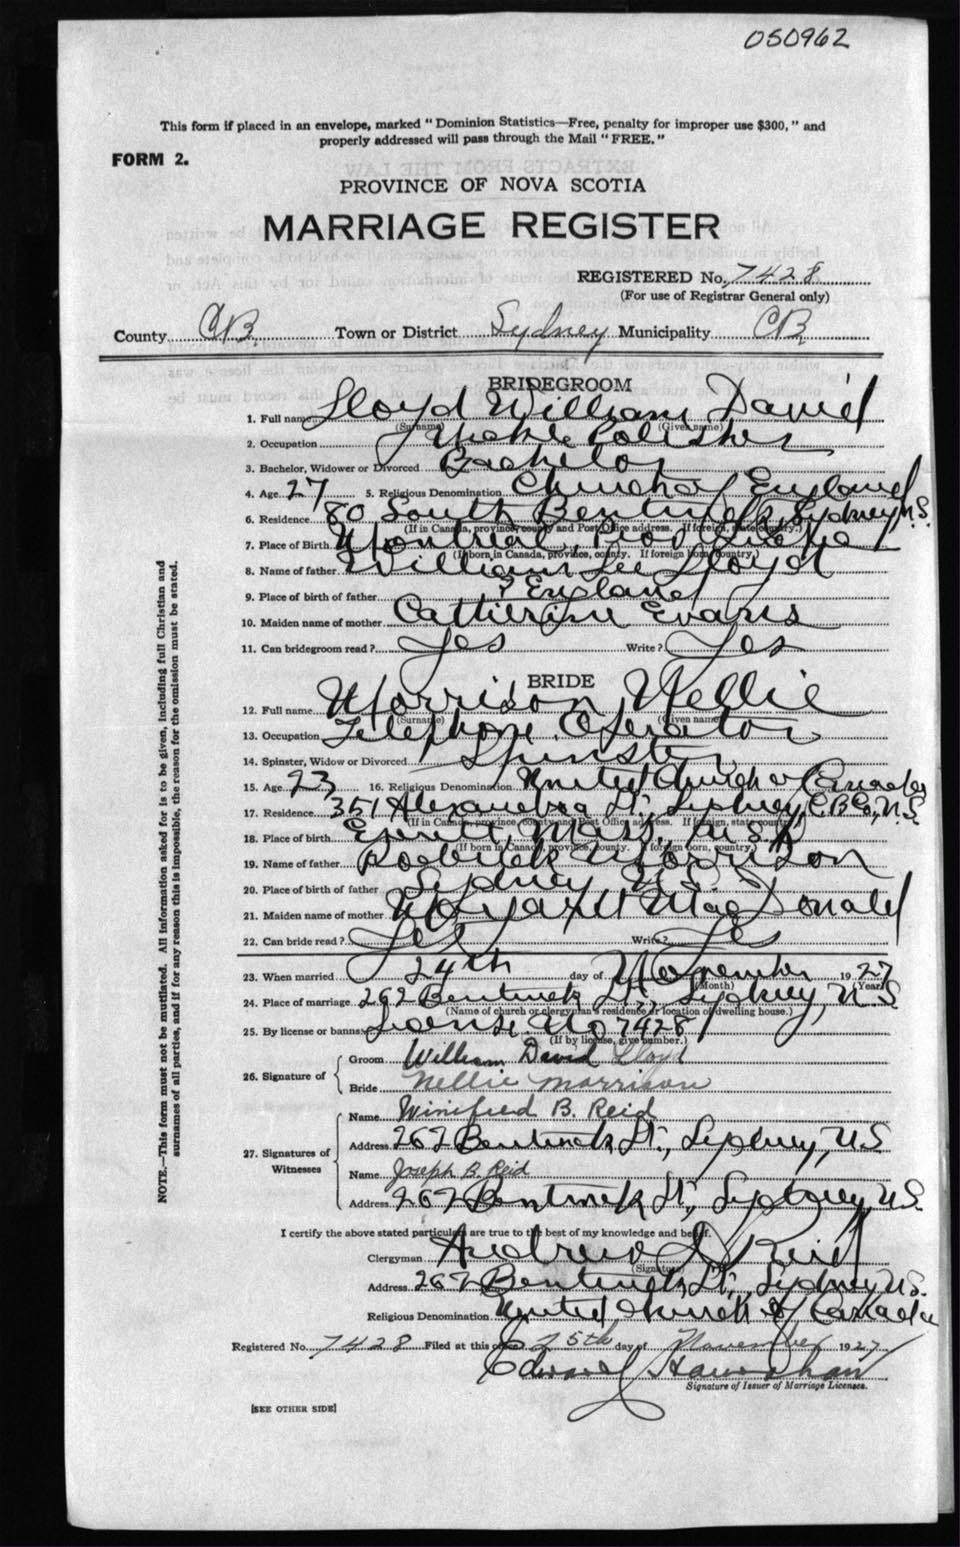 050962
This form if placed in an envelope, marked "Dominion Statistics—Free, penalty for improper use $300," and
properly addressed will pass through the Mail "FREE."
FORM 2.
PROVINCE OF NOVA SCOTIA
MARRIAGE REGISTER
REGISTERED No. 7428
(For use of Registrar General only)
County C.B. Town or District Sydney Municipality C.B.
BRIDEGROOM
1. Full name Lloyd William David
(Surname) (Given name)
2. Occupation Nickle Polisher
3. Bachelor, Widower or Divorced Bachelor
4. Age 27 5. Religious Denomination Church of England
6. Residence 80 South Bentinck, Sydney, N.S.
(If in Canada, province, county and Post Office address. If foreign, state country.)
7. Place of Birth Montreal,
(If born in Canada, province, county. If foreign born, country.)
8. Name of father William Lee Lloyd
9. Place of birth of father ? England
10. Maiden name of mother Catherine Evans
11. Can bridegroom read? Yes Write? Yes
BRIDE
12. Full name Morrison, Nellie
(Surname) (Given name)
13. Occupation Telephone Operator
14. Spinster, Widow or Divorced Spinster
15. Age 23 16. Religious Denomination United Church of Canada
17. Residence 351 Alexandra St., Sydney, C.B. Co., N.S.
(If in Canada, province, county and Post Office address. If foreign, state country.)
18. Place of birth Everett, Mass., U.S.A
(If born in Canada, province, county. If foreign born, country.)
19. Name of father Roderick Morrison
20. Place of birth of father Sydney N.S.
21. Maiden name of mother Margaret MacDonald
22. Can bride read? Yes Write? Yes
23. When married 24th day of November 1927
(Month) (Year)
24. Place of marriage 262 Bentinck St., Sydney, N.S.
(Name of church or clergyman's residence or location of dwelling house.)
25. By license or banns License No 7428
(If by license, give number.)
26. Signature of Groom William David Lloyd
Bride Nellie Morrison
27. Signatures of Witnesses Name Winifred B. Reid
Address 262 Bentinck St., Sydney, N.S
Name Joseph B. Reid
Address 262 Bentinck St., Sydney, N.S.
I certify the above stated particulars are true to the best of my knowledge and belief.
Clergyman Andrew D Reid
(Signature)
Address 262 Bentinck St., Sydney, N.S.
Religious Denomination United Church of Canada
Registered No. 7428 Filed at this office 25th day of November 1927
Edward
Signature of Issuer of Marriage Licenses.
[SEE OTHER SIDE]
NOTE.—This form must not be mutilated. All information asked for is to be given, including full Christian and
surnames of all parties, and if for any reason this is impossible, the reason for the omission must be stated.